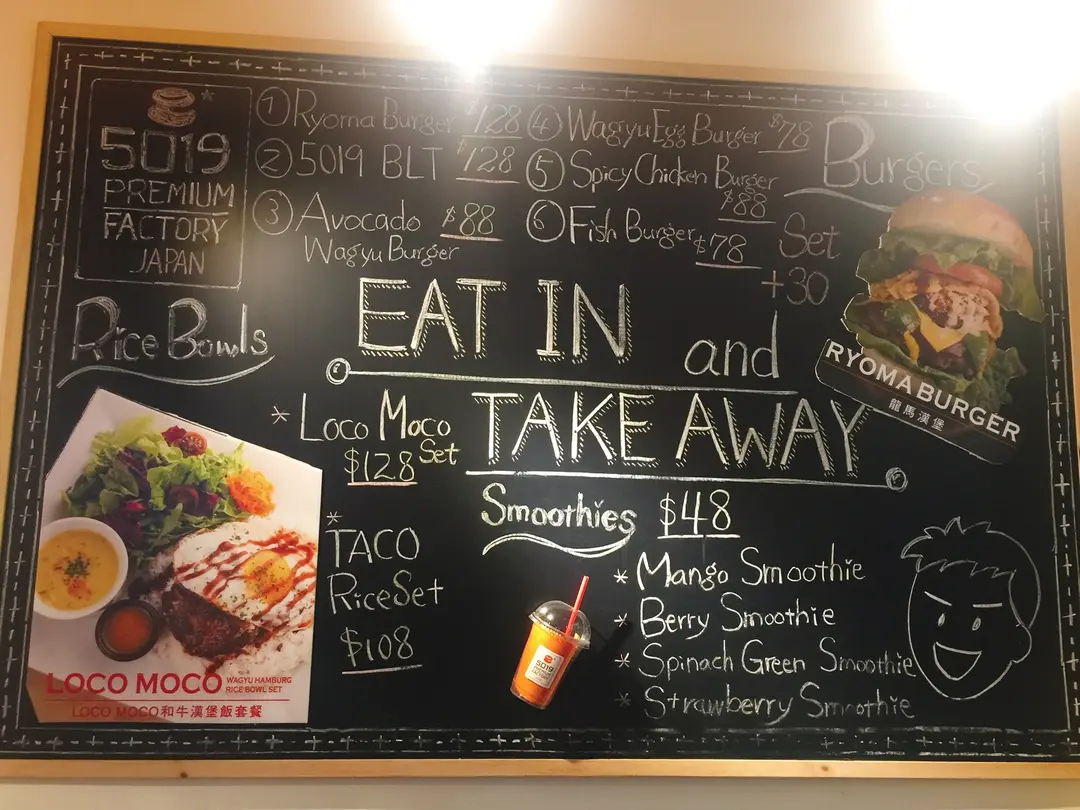 5019
PREMIUM
FACTORY
JAPAN
① Ryoma Burger $128
② 5019 BLT $128
③ Avocado $88
Wagyu Burger
④ Wagyu Egg Burger $78
⑤ Spicy Chicken Burger
$88
⑥ Fish Burger $78
Burgers
Set
+30
RYOMA BURGER
龍馬漢堡
EAT IN and
TAKE AWAY
Rice Bowls
* Loco Moco
Set
$128
* TACO
Rice Set
$108
LOCO MOCO WAGYU HAMBURG
RICE BOWL SET
LOCO MOCO和牛漢堡飯套餐
Smoothies $48
* Mango Smoothie
* Berry Smoothie
* Spinach Green Smoothie
* Strawberry Smoothie
5019